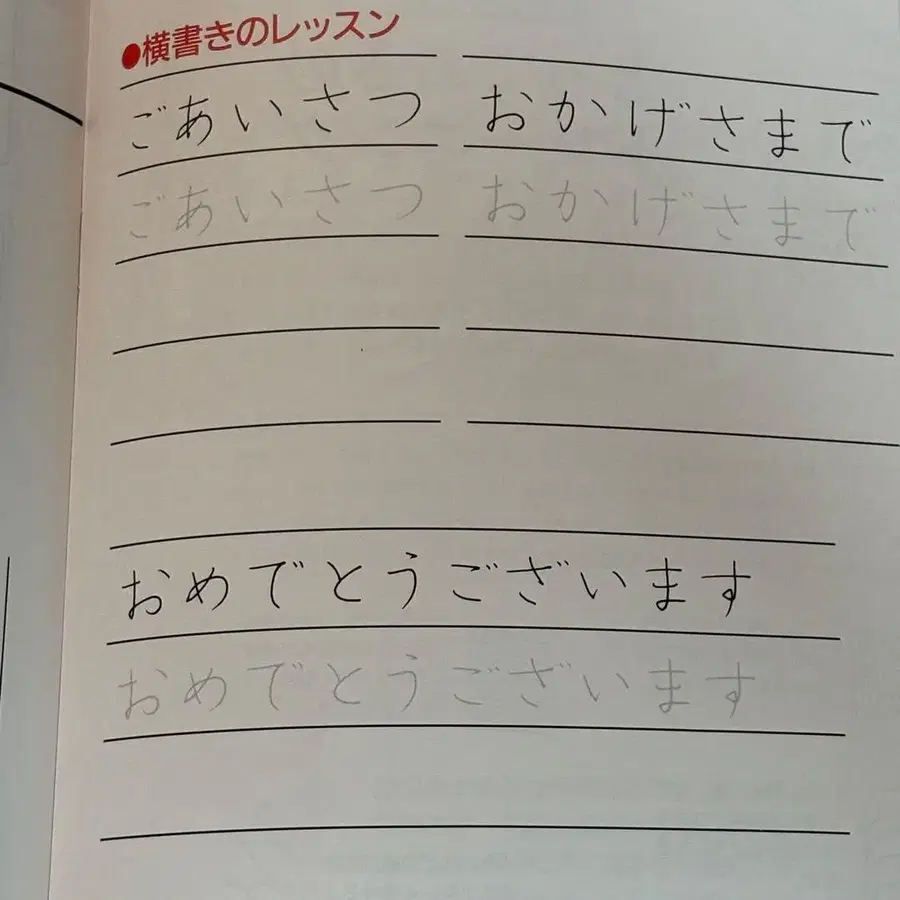 ●横書きのレッスン
ごあいさつ おかげさまで
ごあいさつ おかげさまで
おめでとうございます
おめでとうございます